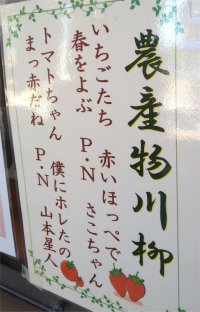 農産物川柳
いちごたち 赤いほっぺで
春をよぶ P・N さこちゃん
トマトちゃん 僕にホレたの
まっ赤だね P・N 山本星人